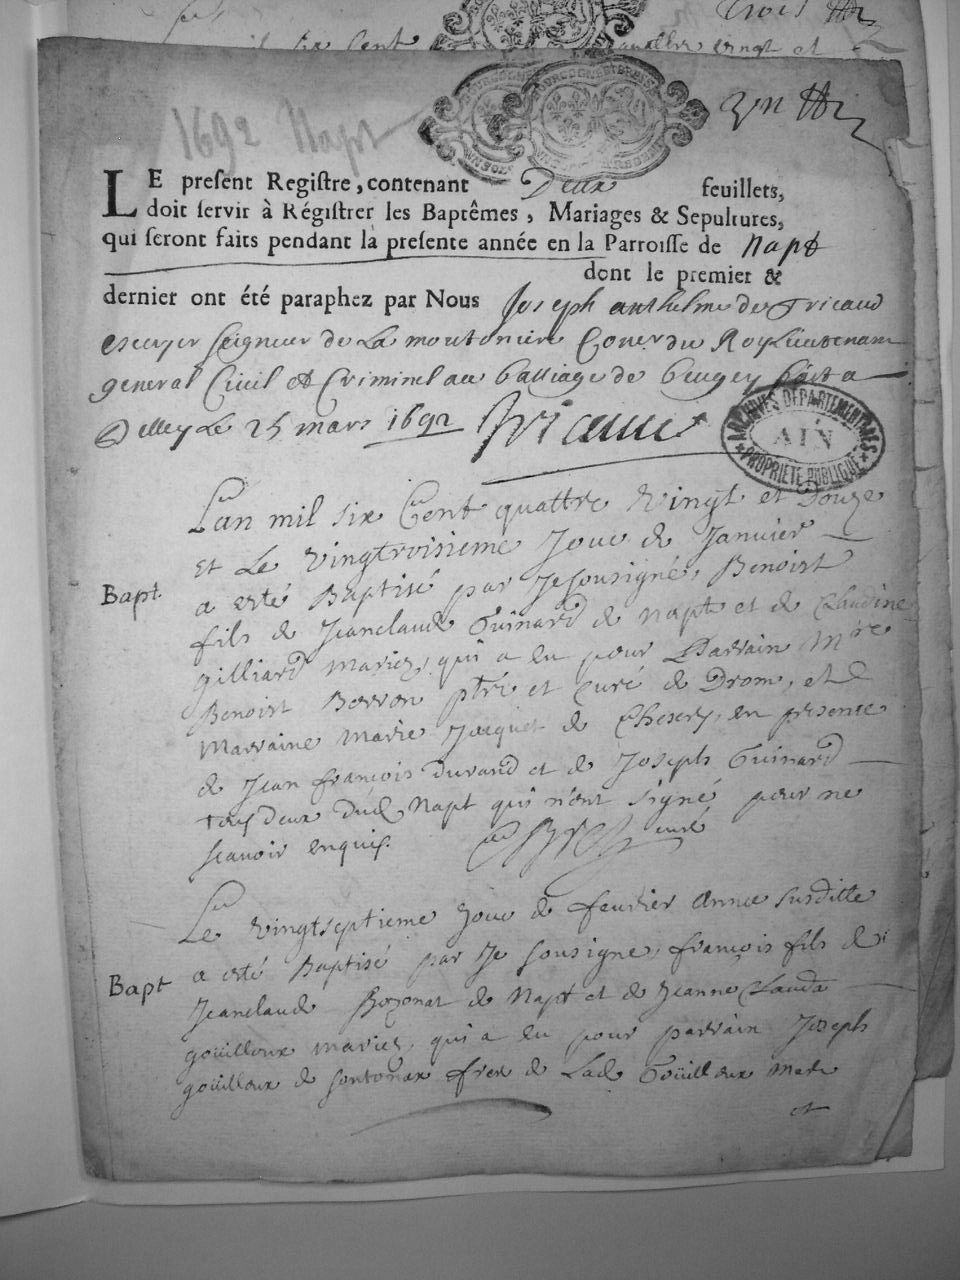 Trois
six Cent quattre vingt et
1692 Napt
BOURGOGNE ET BRESSE
LE present Registre, contenant Deux feuillets,
doit servir à Régistrer les Baptêmes, Mariages & Sepultures,
qui seront faits pendant la presente année en la Parroisse de Napt
dont le premier &
dernier ont été paraphez par Nous Joseph anthelme de Tricaud
escuyer seigneur de La moutoniere Coner du Roy Lieutenant
general Civil et Criminel au balliage de beugey fait a
Belley Le 25 mars 1692 Tricaud
ARCHIVES DÉPARTEMENTALES
AIN
PROPRIÉTÉ PUBLIQUE
Lan mil six Cent quattre Vingt et Douze
et Le Vingtroisieme Jour de Janvier
Bapt a esté Baptisé par Je sousigné, Benoist
fils de Jeanclaude Guinard de Napt et de Claudine
Gilliard mariez, qui a eu pour Parrain Mre
Benoist Berron ptre et Curé de Drom, et
Marraine Marie Jacquet de Chesery, en presence
de Jean françois Durand et de Joseph Guinard
tous deux dud Napt qui n'ont signé pour ne
scavoir enquis. curé
Le Vingtseptieme Jour de feuvrier Année susditte
Bapt a esté Baptisé par Je sousigné, françois fils de
Jeanclaude Bozonat de Napt et de Jeanne Clauda
goüilloux mariez, qui a eu pour parrain Joseph
goüilloux de sontonax frere de Lad Goüilloux mere
et